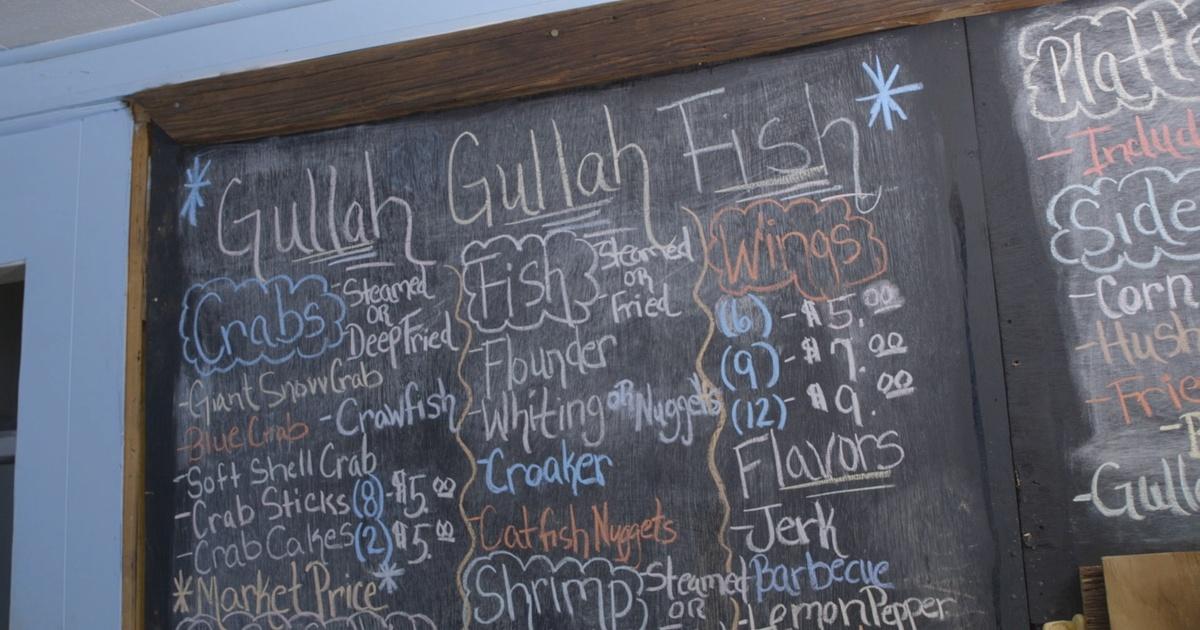 Gullah Gullah Fish
Crabs - Steamed
OR
Deep Fried
- Giant Snow Crab
- Blue Crab - Crawfish
- Soft Shell Crab
- Crab Sticks (8) - $5.00
- Crab Cakes (2) $5.00
*Market Price*
Fish - Steamed
OR
Fried
- Flounder
- Whiting OR Nuggets
- Croaker
- Catfish Nuggets
Shrimp - Steamed
OR
Wings
(6) - $5.00
(9) - $7.00
(12) - $9.00
Flavors
- Jerk
Barbecue
- Lemon Pepper
Platte
- Includ
Side
- Corn
- Hush
- Frie
- Gull